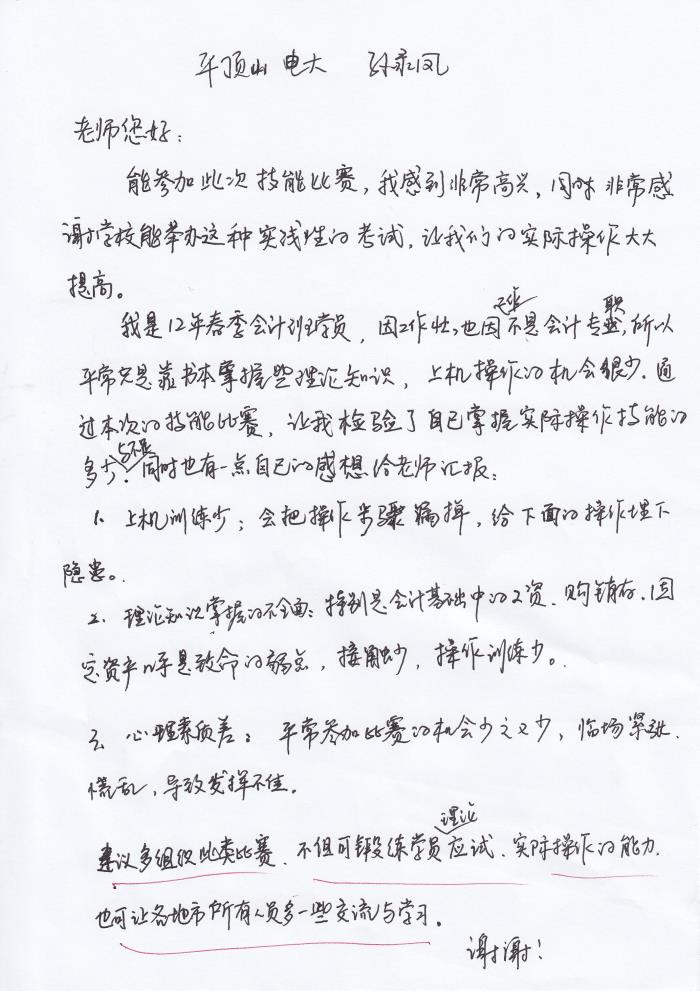 平顶山电大 孙承凤
老师您好：
能参加此次技能比赛，我感到非常高兴，同时非常感
谢学校能举办这种实践性的考试，让我们的实际操作大大
提高。
我是12年春季会计班学员，因工作忙，也因不是会计专业，所以
工作 职
平常只是靠书本掌握些理论知识，上机操作的机会很少.通
过本次的技能比赛，让我检验了自己掌握实际操作技能的
多少.同时也有一点自己的感想给老师汇报：
与不足
1、上机训练少；会把操作步骤漏掉，给下面的操作埋下
隐患。
2、理论知识掌握的不全面：特别是会计基础中的工资、购销存、固
定资产等是致命的弱点，接触少，操作训练少。
3、心理素质差：平常参加比赛的机会少之又少，临场紧张、
慌乱，导致发挥不佳。
建议多组织此类比赛、不但可锻练学员应试、实际操作的能力.
理论
也可让各地市所有人员多一些交流与学习。
谢谢！